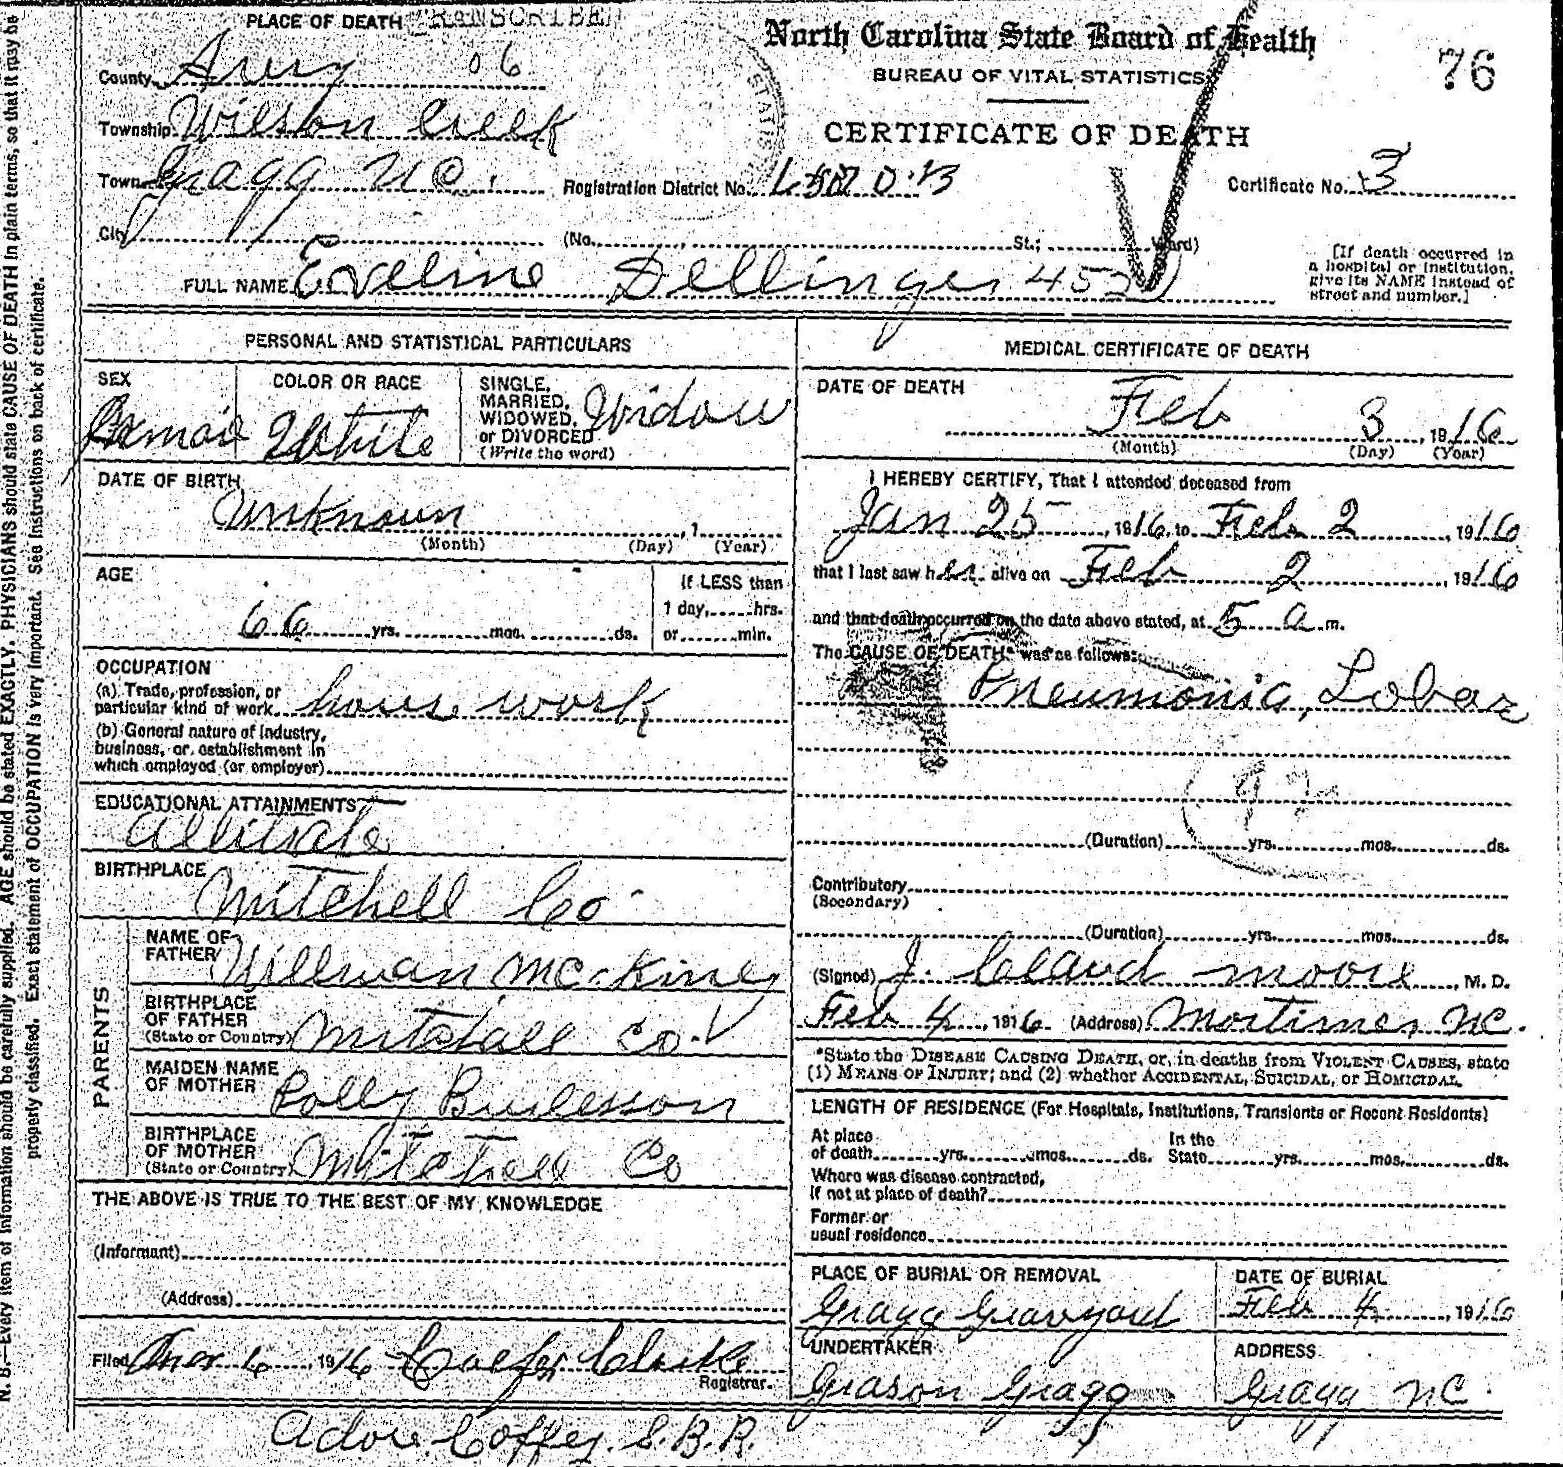 PLACE OF DEATH TRANSCRIBED
North Carolina State Board of Health
76
BUREAU OF VITAL STATISTICS
CERTIFICATE OF DEATH
County Avery 06
Township Wilson Creek
Town Gragg NC. Registration District No. Certificate No. 3
City (No. St.; Ward)
FULL NAME Eveline Dellinger 453
[If death occurred in
a hospital or institution,
give its NAME instead of
street and number.]
PERSONAL AND STATISTICAL PARTICULARS
SEX
COLOR OR RACE White
SINGLE,
MARRIED,
WIDOWED,
or DIVORCED
(Write the word) Widow
DATE OF BIRTH
Unknown , 1
(Month) (Day) (Year)
AGE
66 yrs. mos. ds.
If LESS than
1 day, hrs.
or min.
OCCUPATION
(a) Trade, profession, or
particular kind of work house work
(b) General nature of Industry,
business, or establishment in
which employed (or employer)
EDUCATIONAL ATTAINMENTS
BIRTHPLACE
Mitchell Co
PARENTS
NAME OF
FATHER McKiney
BIRTHPLACE
OF FATHER
(State or Country) Mitchall Co.
MAIDEN NAME
OF MOTHER Polly Burlesson
BIRTHPLACE
OF MOTHER
(State or Country) Mitchell Co
THE ABOVE IS TRUE TO THE BEST OF MY KNOWLEDGE
(Informant)
(Address)
Filed Mar 6 1916 Clark
Registrar.
Coffey. S.B.R.
MEDICAL CERTIFICATE OF DEATH
DATE OF DEATH
Feb 3, 1916
(Month) (Day) (Year)
I HEREBY CERTIFY, That I attended deceased from
Jan 25, 1916, to Feb 2, 1916
that I last saw her alive on Feb 2, 1916
and that death occurred on the date above stated, at 5 a m.
The CAUSE OF DEATH* was as follows:
Pneumonia, Lobar
92
(Duration) yrs. mos. ds.
Contributory
(Secondary)
(Duration) yrs. mos. ds.
(Signed) J. Claud Moore, M. D.
Feb 4, 1916 (Address) Mortimer NC.
*State the DISEASE CAUSING DEATH, or, in deaths from VIOLENT CAUSES, state
(1) MEANS OF INJURY; and (2) whether ACCIDENTAL, SUICIDAL, or HOMICIDAL.
LENGTH OF RESIDENCE (For Hospitals, Institutions, Transients or Recent Residents)
At place
of death yrs. mos. ds.
In the
State yrs. mos. ds.
Where was disease contracted,
if not at place of death?
Former or
usual residence
PLACE OF BURIAL OR REMOVAL
Gragg Graveyard
DATE OF BURIAL
Feb 4, 1916
UNDERTAKER
Grason Gragg
ADDRESS
Gragg NC.
N. B.—Every item of information should be carefully supplied. AGE should be stated EXACTLY. PHYSICIANS should state CAUSE OF DEATH in plain terms, so that it may be
properly classified. Exact statement of OCCUPATION is very important. See instructions on back of certificate.